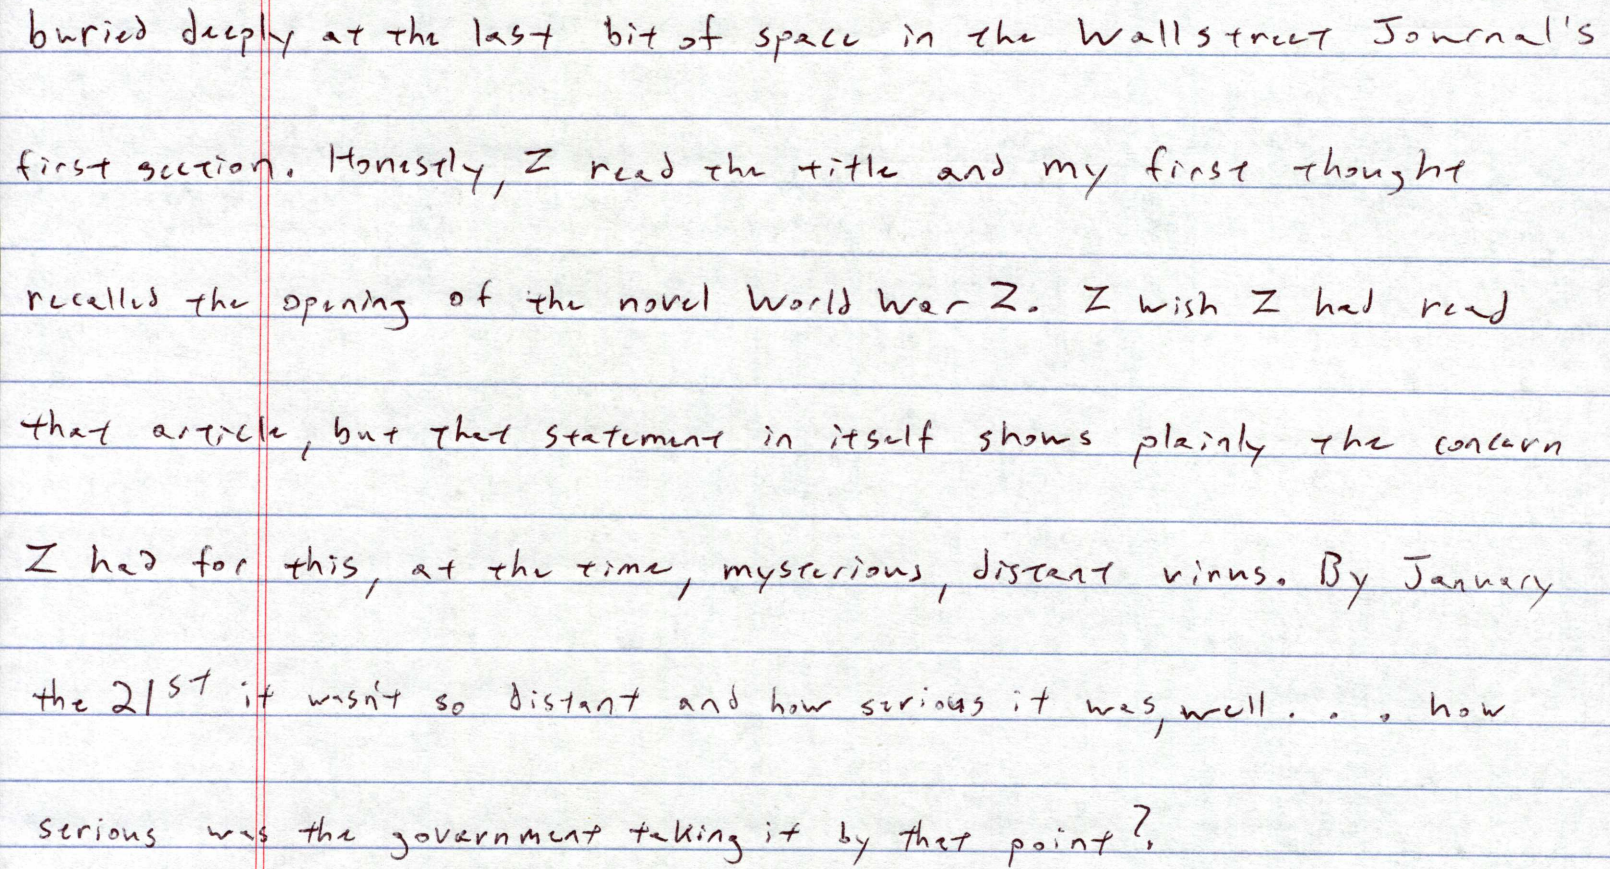 buried deeply at the last bit of space in the Wall street Journal's
first section. Honestly, I read the title and my first thought
recalled the opening of the novel World War Z. I wish I had read
that article, but that statement in itself shows plainly the concern
I had for this, at the time, mysterious, distant virus. By January
the 21st it wasn't so distant and how serious it was, well . . . how
serious was the government taking it by that point?